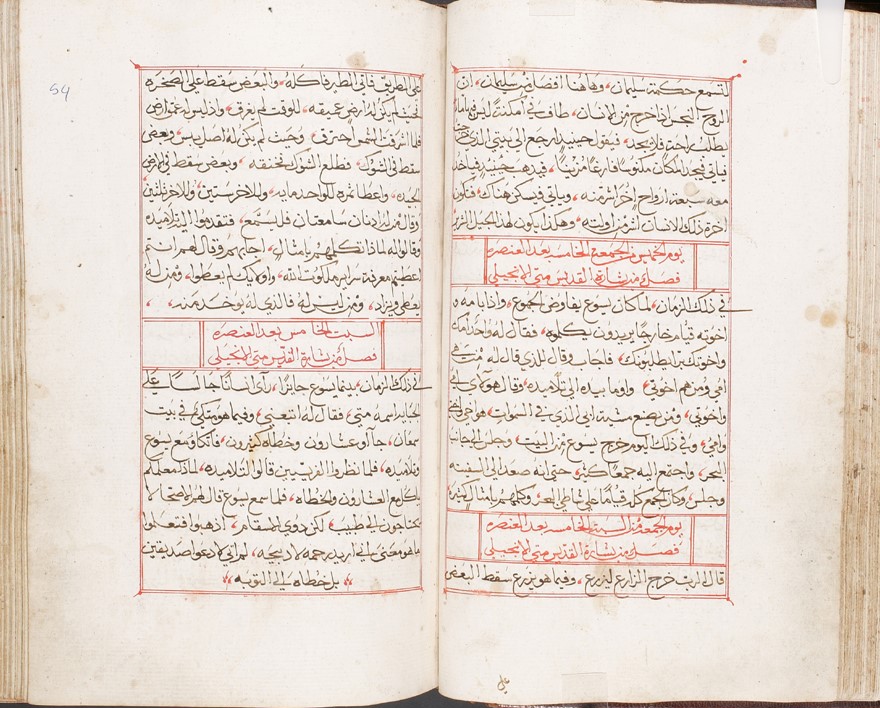 لتسمع حكمة سليمان، وهاهنا افضل من سليمان، ان
الروح النجس اذا خرج من الانسان، طاف في امكنة ليس فيها ما
يطلب راحة فلا يجد، فيقول حينيد ارجع الى بيتي الذي خرجت
فياتي فيجد المكان مكنوسا فارغا مزينا، فيذهب حينيد فياخد
معه سبعة ارواح اخر اشر منه، وياتي فيسكن هناك، فتكون
اخرة ذلك الانسان اشر من اوليته، وهكذا يكون لهذا الجيل الشرير
يوم الخميس من الجمعة الخامسه بعد العنصره
فصل من بشارة القديس متى الانجيلي
في ذلك الزمان، لما كان يسوع يفاوض الجموع، واذا بامه و
اخوته قيام خارجا يريدون يكلموه، فقال له واحد امك
واخوتك برا يطلبونك، فاجاب وقال للذي قال له من هي
امي ومن هم اخوتي، واوما بيده الى تلاميذه، وقال هوذا امي
واخوتي، ومن يصنع مشية ابي الذي في السموات، هو اخي واختي
وامي، وفي ذلك اليوم خرج يسوع من البيت، وجلس الى جانب
البحر، واجتمع اليه جمعا كثير، حتى انه صعد الى السفينه
وجلس، وكان الجمع كله قياما على شاطي البحر، وكلمهم بامثال كثيرة
يوم الجمعه من السبة الخامسه بعد العنصره
فصل من بشارة القديس متى الانجيلي
قال الرب خرج الزارع ليزرع، وفيما هو يزرع سقط البعض
على
54
على الطريق فاتى الطير فاكله، والبعض سقط على الصخره
بحيث لم يكن له ارض عميقه، للوقت لم يغرق، واذ ليس له عمق ارض
فلما اشرقت الشمس احترق، وحيث لم يكن له اصل يبس، وبعض
سقط في الشوك، فطلع الشوك فخنقه، وبعض سقط في الارض
الجيده، واعطا ثمرة للواحد مايه، وللاخر ستين، وللاخر ثلثين
وقال من له اذنان سامعتان فليسمع، فتقدموا اليه تلاميذه
وقالوا له لماذا تكلمهم بامثال، اجابهم وقال لهم انتم
اعطيتم معرفة سراير ملكوت الله، واولايك لم يعطوا، ومن له
يعطى ويزاد، ومن ليس له فالذي له يوخد منه،
السبت الخامس بعد العنصره
فصل من بشارة القديس متى الانجيلي
في ذلك الزمان، بينما يسوع جايزا، راى انسانا جالسا على
الجبايه اسمه متى، فقال له اتبعني، وفيما هو متكي في بيت
سمعان، جاوا عشارون وخطاه كثيرون، فاتكاو مع يسوع
وتلاميذه، فلما نظروا الفريسيين قالوا لتلاميذه، لماذا معلمكم
ياكل مع العشارون والخطاه، فلما سمع يسوع قال لهم الاصحا لا
يحتاجون الى طبيب، لكن ذوي الاسقام، اذهبوا فتعلموا
ما هو معنى اني اريد رحمه لا ذبيحه، لم اتي لادعوا صديقين
بل خطاه الى التوبه